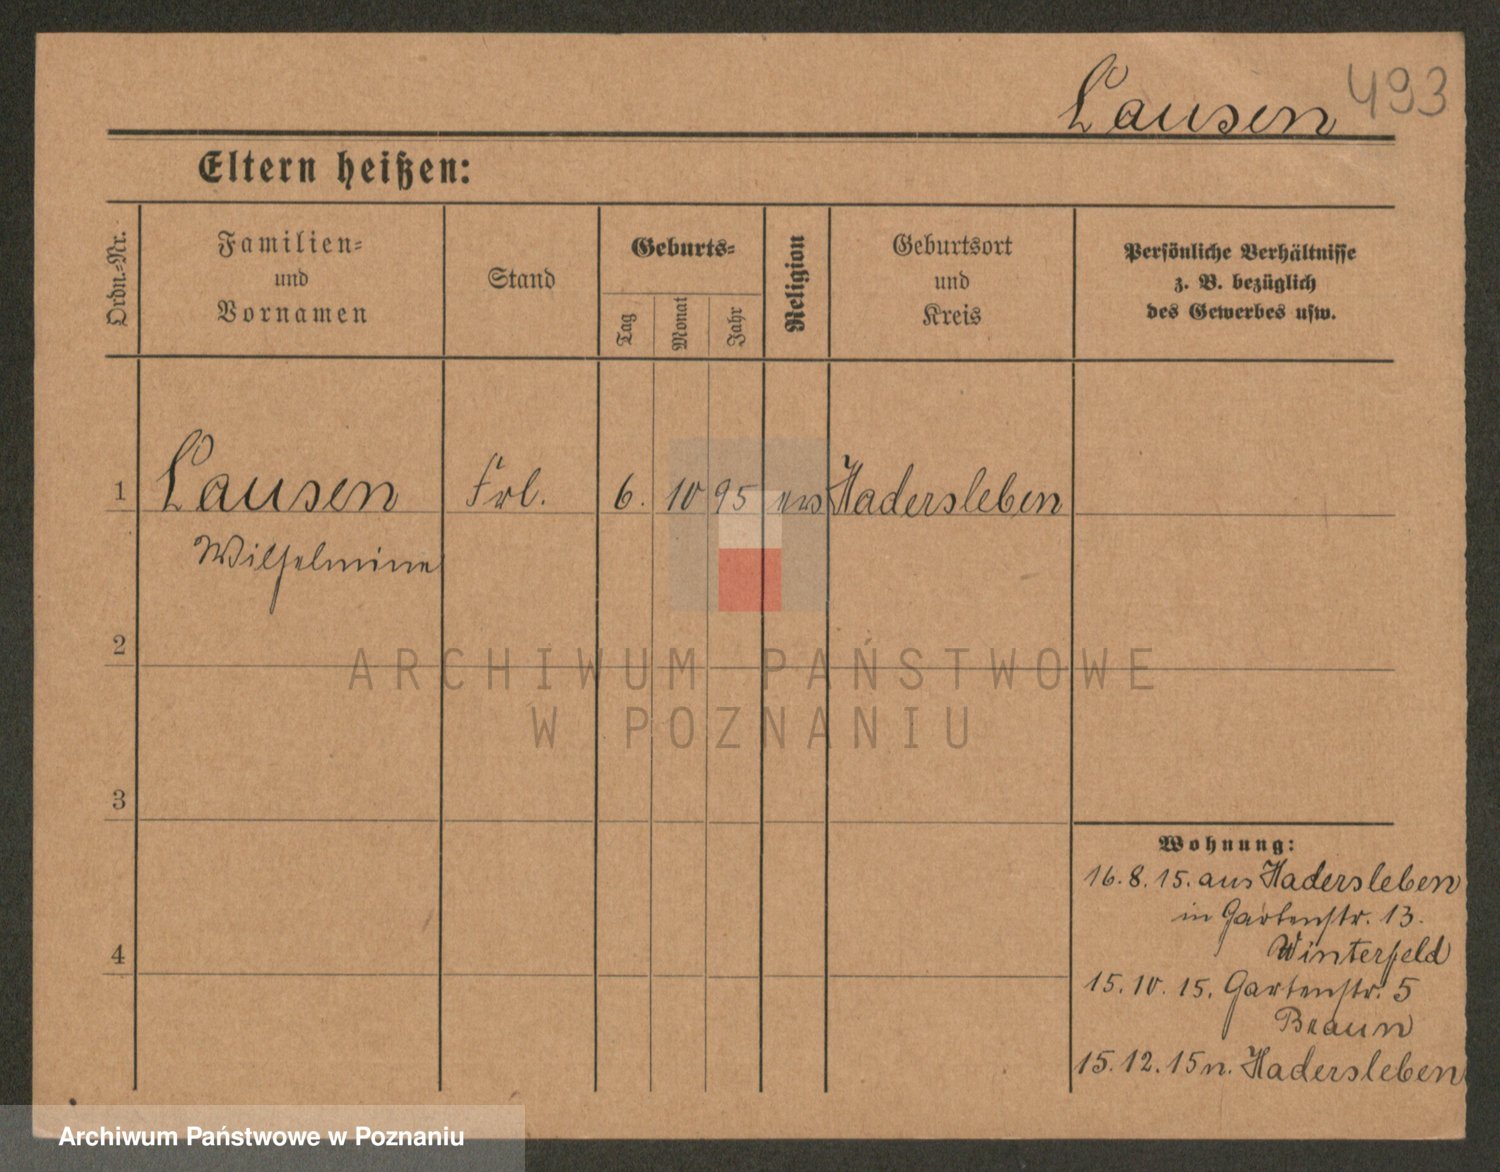 Lausen 493
Eltern heißen:
Ordn.-Nr.
Familien-
und
Vornamen
Stand
Geburts-
Tag
Monat
Jahr
Religion
Geburtsort
und
Kreis
Persönliche Verhältnisse
z. B. bezüglich
des Gewerbes usw.
1 Lausen Frl. 6. 10 95 Hadersleben
Wilhelmine
2
ARCHIWUM PAŃSTWOWE
W POZNANIU
3
Wohnung:
16. 8. 15. aus Hadersleben
in Gartenstr. 13.
Winterfeld
4
15. 10. 15. Gartenstr. 5
Braun
15. 12. 15 n. Hadersleben
Archiwum Państwowe w Poznaniu